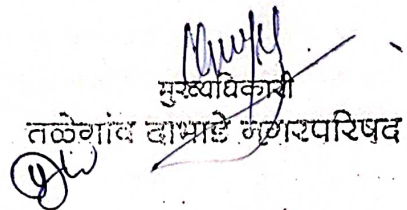 मुख्याधिकारी
तळेगांव दाभाडे नगरपरिषद